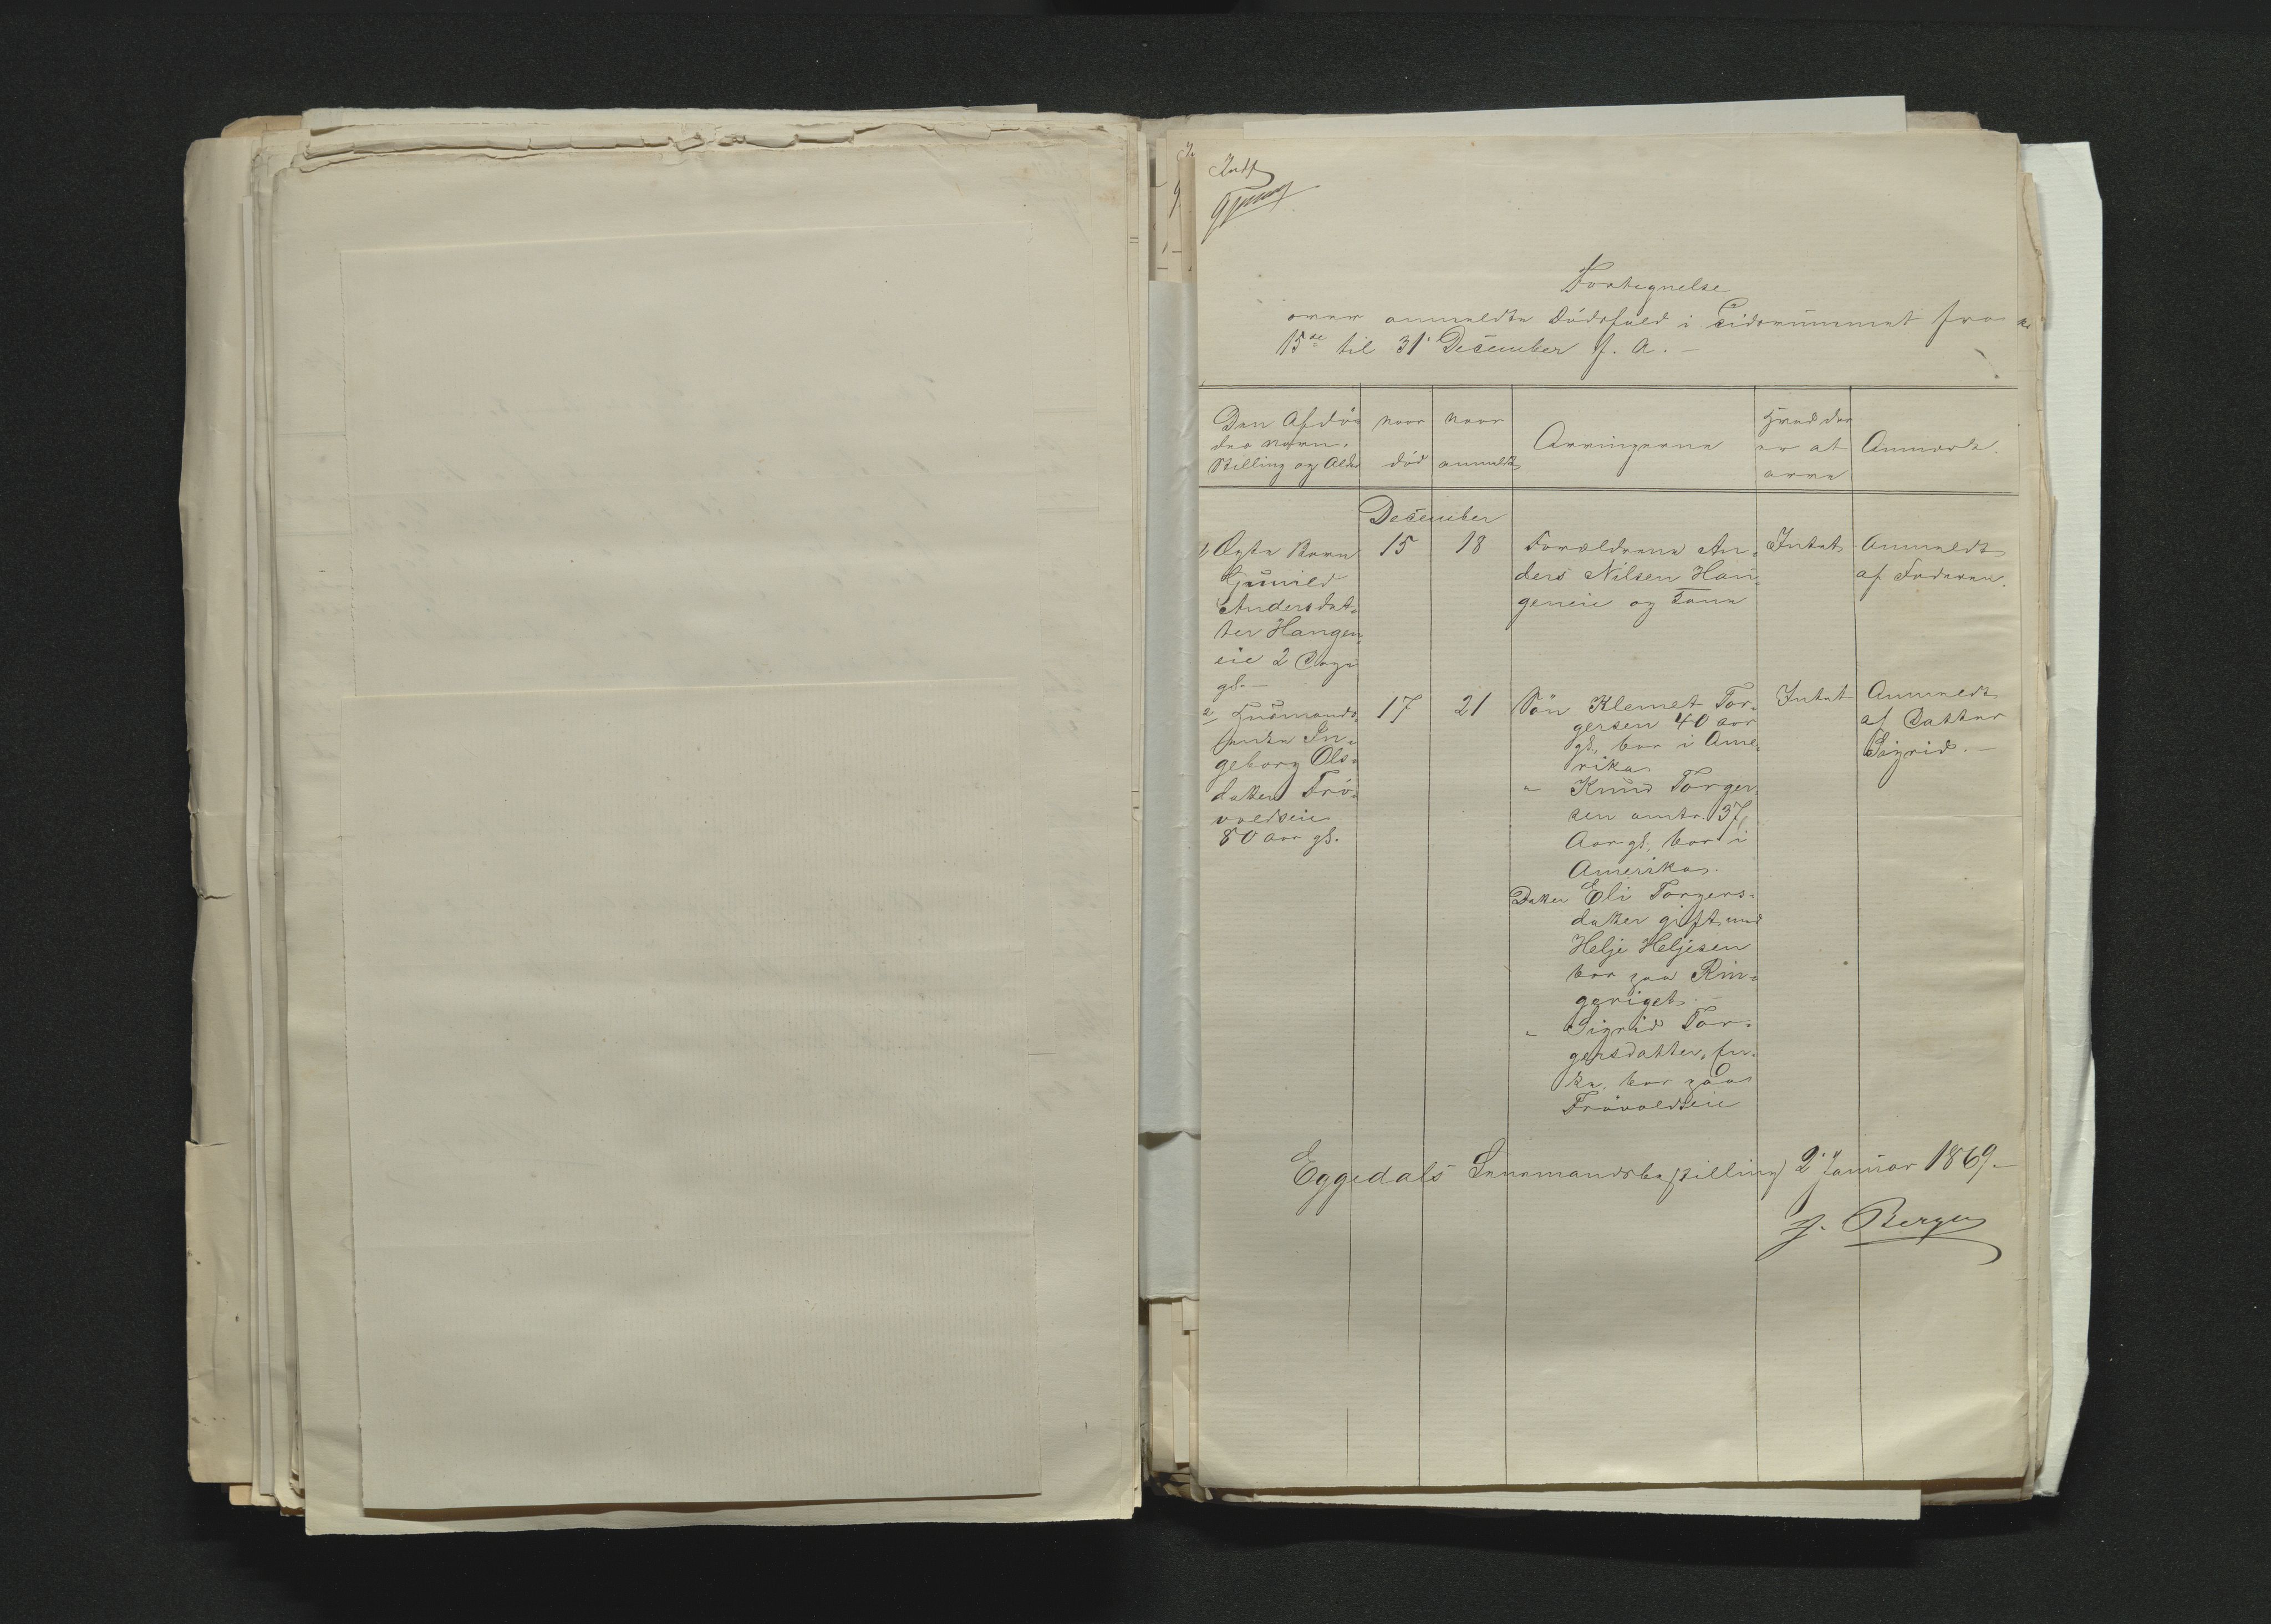 Indf
Fortegnelse
over anmeldte Dödsfald i Tidsrummet fra
15de til 31' December f. A. -
Den Afdö-
des Navn,
Stilling og Alder
naar
död
naar
anmeldt
Arvingerne
Hvad der
er at
arve
Anmærk.
December
1, Ægte Barn
Gunild
Andersdat-
ter Hangen-
eie 2 Dage
gl. -
15
18
Forældrene An-
ders Nilsen Han-
geneie og Kone
Intet
Anmeldt
af Faderen.
2, Husmands-
enke In-
geborg Ols-
datter Frö-
voldseie
80 aar gl.
17
21
Sön Klemet Tor-
gersen 40 aar
gl., bor i Ame-
rika
" Knud Torger-
sen omtr. 37
Aar gl., bor i
Amerika.
Datter Eli Torgers-
datter gift med
Helje Heljesen
bor paa Rin-
geriget
" Sigrid Tor-
gersdatter, En-
ke, bor paa
Frövoldseie
Intet
Anmeldt
af Datter
Sigrid. -
Eggedals Lensmandsbestilling 2' Januar 1869. -
Bergen